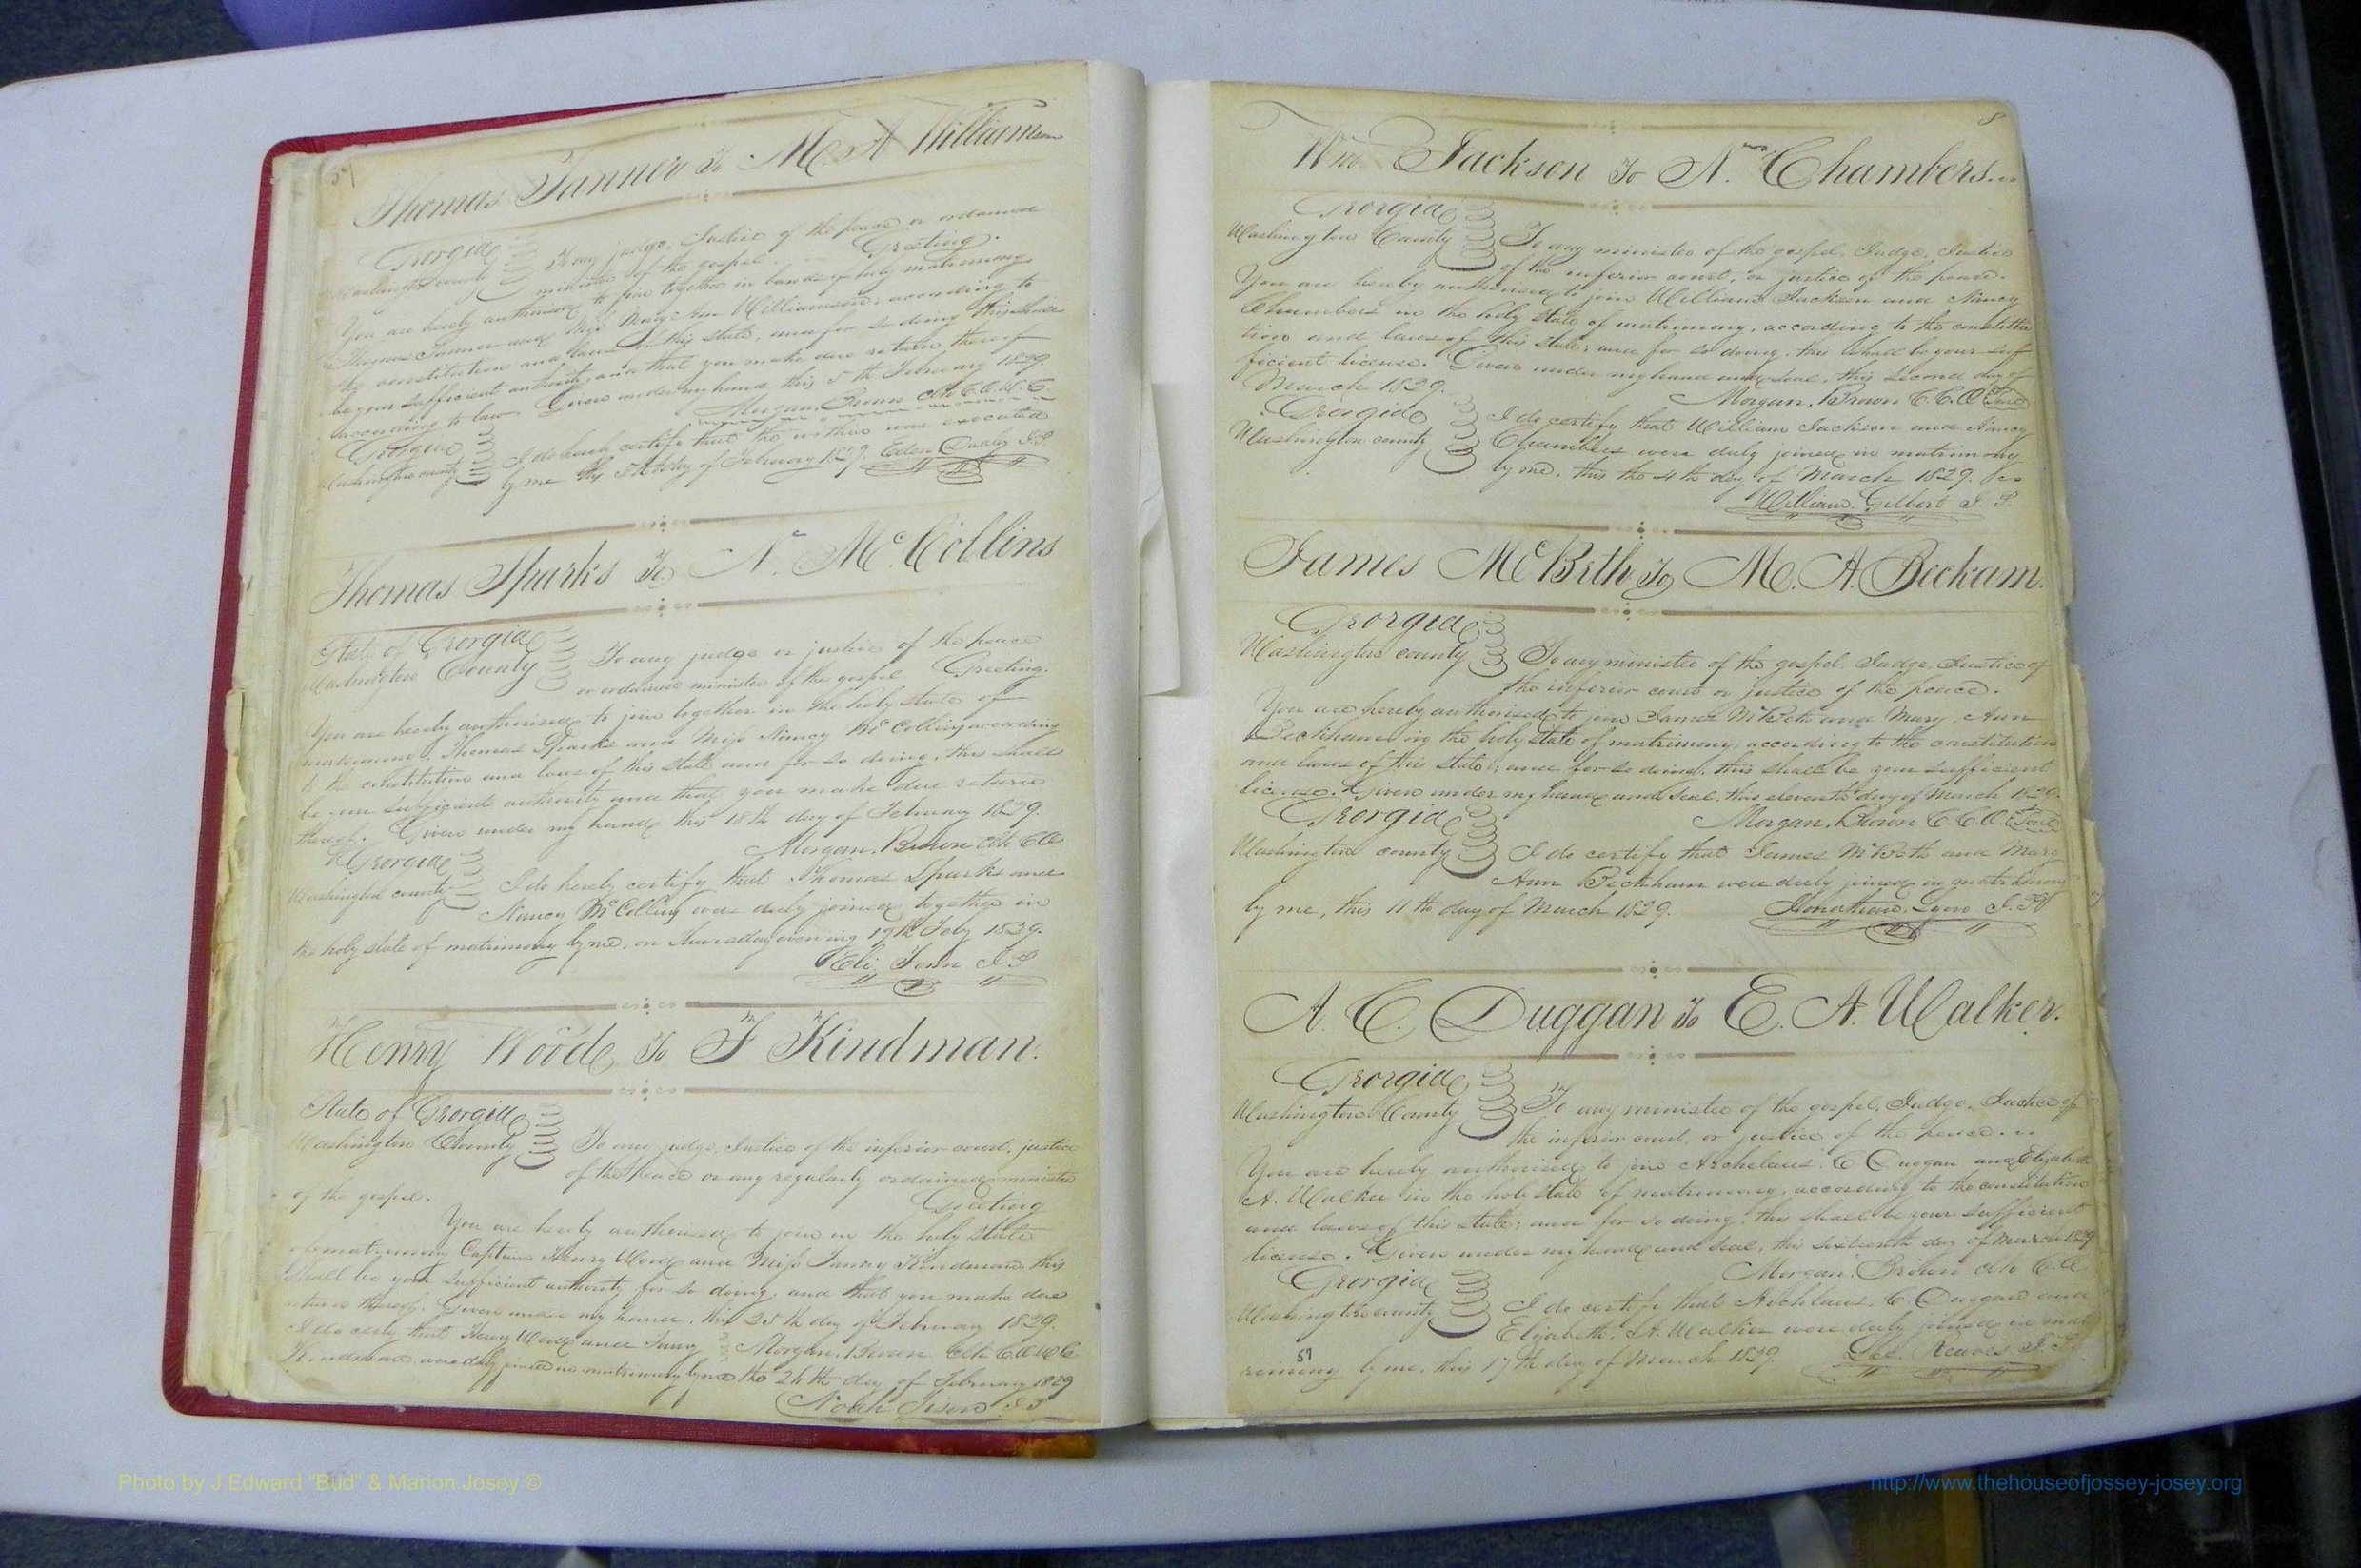 57
Thomas Tanner To M. A Williamson
Georgia
Washington county
To any judge, Justice of the peace or ordained
minister of the gospel. Greeting.
You are hereby authorised to join together in bands of holy matrimony
Thomas Tanner and Miss Mary Ann Williamson; according to
the constitution and laws of this state, and for so doing this shall
be your sufficient authority, and that you make due return thereof
according to law. Given under my hand this 5th February 1829.
Morgan, Brown Clk C.O.W.C.
Georgia
Washington county
I do hereby certify that the within was executed
by me this 5th day of February 1829.
Thomas Sparks To N. McCollins
State of Georgia
Washington County
To any judge or justice of the peace
or ordained minister of the gospel Greeting.
You are hereby authorised to join together in the holy state of
matrimony, Thomas Sparks and Miss Nancy McCollins according
to the constitution and laws of this state and for so doing, this shall
be your sufficient authority and that you make due return
thereof. Given under my hand this 18th day of February 1829.
Morgan, Brown Clk CO
Georgia
Washington county
I do hereby certify that Thomas Sparks and
Nancy McCollins was duly joined together in
the holy state of matrimony by me, on Thursday evening 19th Feby 1829.
Eli Fenn J.P
Henry Wood To F Kindman.
State of Georgia
Washington County
To any judge, Justice of the inferior court, justice
of the peace or any regularly ordained minister
of the gospel. Greeting
You are hereby authorised to join in the holy state
of matrimony Captain Henry Wood and Miss Fanny Kindman this
shall be your sufficient authority for so doing; and that you make due
return thereof. Given under my hand, this 25th day of February 1829.
I do certy that Henry Wood and Fanny Morgan, Brown Clk C.O.W.C.
Kindman were duly joined in matrimony by me the 26th day of February 1829
Noah J.P
8
Wm Jackson To N. Chambers.
Georgia
Washington County
To any minister of the gospel, Judge, Justice
of the inferior court, or justice of the peace.
You are hereby authorised to join William Jackson and Nancy
Chambers in the holy state of matrimony, according to the constitu
tion and laws of this state; and for so doing, this shall be your suf
ficient license. Given under my hand and seal, this second day of
March 1829.
Morgan, Brown C.C.O Seal
Georgia
Washington county
I do certify that William Jackson and Nancy
Chambers were duly joined in matrimony
by me, this the 4th day of March 1829.
William Gilbert J. P.
James McBeth To M. A. Beckam.
Georgia
Washington county
To any minister of the gospel. Judge, Justice of
the inferior court or justice of the peace.
You are hereby authorised to join James McBeth and Mary Ann
Beckham in the holy state of matrimony, according to the constitution
and laws of this state; and for so doing, this shall be your sufficient
license. Given under my hand and seal, this eleventh day of March 1829.
Morgan, Brown C C.O Seal
Georgia
Washington county
I do certify that James McBeth and Mary
Ann Beckham were duly joined in matrimony
by me, this 11th day of March 1829. Jonathan J. P
A. C. Duggan To E. A. Walker.
Georgia
Washington County
To any minister of the gospel, Judge, Justice of
the inferior court, or justice of the peace.
You are hereby authorised to join Archelaus, C Duggan and Elizabeth
A. Walker in the holy state of matrimony, according to the constitution
and laws of this state; and for so doing, this shall be your sufficient
license. Given under my hand and seal, this sixteenth day of March 1829
Morgan, Brown Clk C.O
Georgia
Washington county
I do certify that Archelaus, C. Duggan and
Elizabeth, A. Walker were duly joined in mat
rimony by me, this 17th day of March 1829. Reaves J. P.
59
Photo by J Edward "Bud" & Marion Josey ©
http://www.thehouseofjossey-josey.org